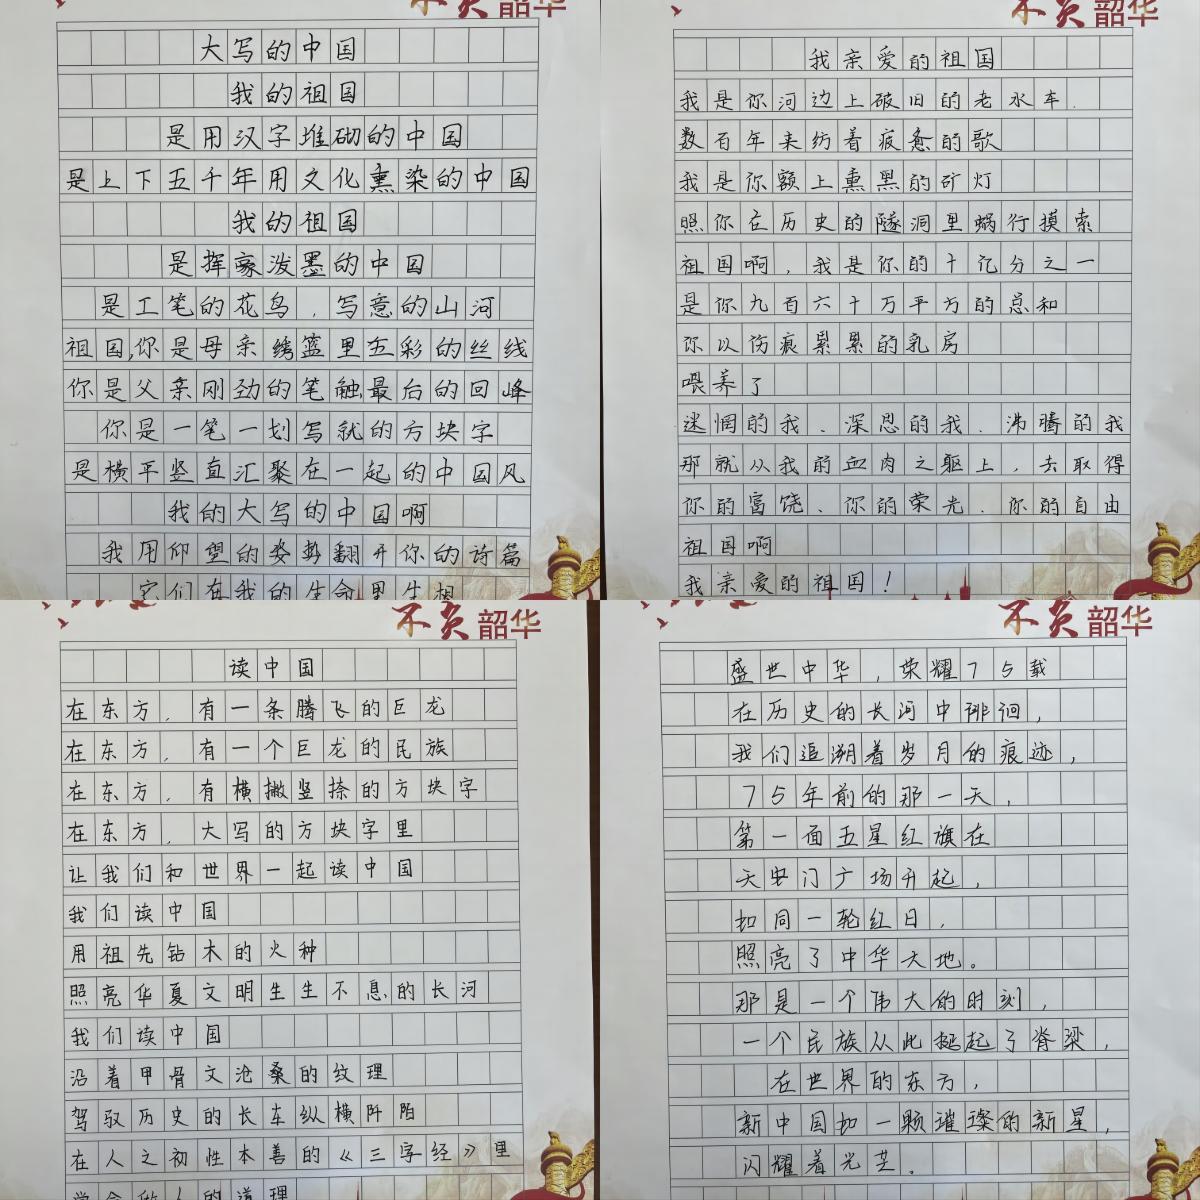 不负韶华
大写的中国
我的祖国
是用汉字堆砌的中国
是上下五千年用文化熏染的中国
我的祖国
是挥豪泼墨的中国
是工笔的花鸟，写意的山河
祖国,你是母亲绣篮里五彩的丝线
你是父亲刚劲的笔触最后的回峰
你是一笔一划写就的方块字
是横平竖直汇聚在一起的中国风
我的大写的中国啊
我用仰望的姿势翻开你的诗篇
它们在我的生命里生根
不负韶华
我亲爱的祖国
我是你河边上破旧的老水车.
数百年来纺着疲惫的歌
我是你额上熏黑的矿灯
照你在历史的隧洞里蜗行摸索
祖国啊，我是你的十亿分之一
是你九百六十万平方的总和
你以伤痕累累的乳房
喂养了
迷惘的我、深思的我、沸腾的我
那就从我的血肉之躯上，去取得
你的富饶、你的荣光、你的自由
祖国啊
我亲爱的祖国！
不负韶华
读中国
在东方，有一条腾飞的巨龙
在东方，有一个巨龙的民族
在东方，有横撇竖捺的方块字
在东方，大写的方块字里
让我们和世界一起读中国
我们读中国
用祖先钻木的火种
照亮华夏文明生生不息的长河
我们读中国
沿着甲骨文沧桑的纹理
驾驭历史的长车纵横阡陌
在人之初性本善的《三字经》里
学会做人的道理
不负韶华
盛世中华，荣耀75载
在历史的长河中徘徊，
我们追溯着岁月的痕迹，
75年前的那一天，
第一面五星红旗在
天安门广场升起，
如同一轮红日，
照亮了中华大地。
那是一个伟大的时刻，
一个民族从此挺起了脊梁，
在世界的东方，
新中国如一颗璀璨的新星，
闪耀着光芒。